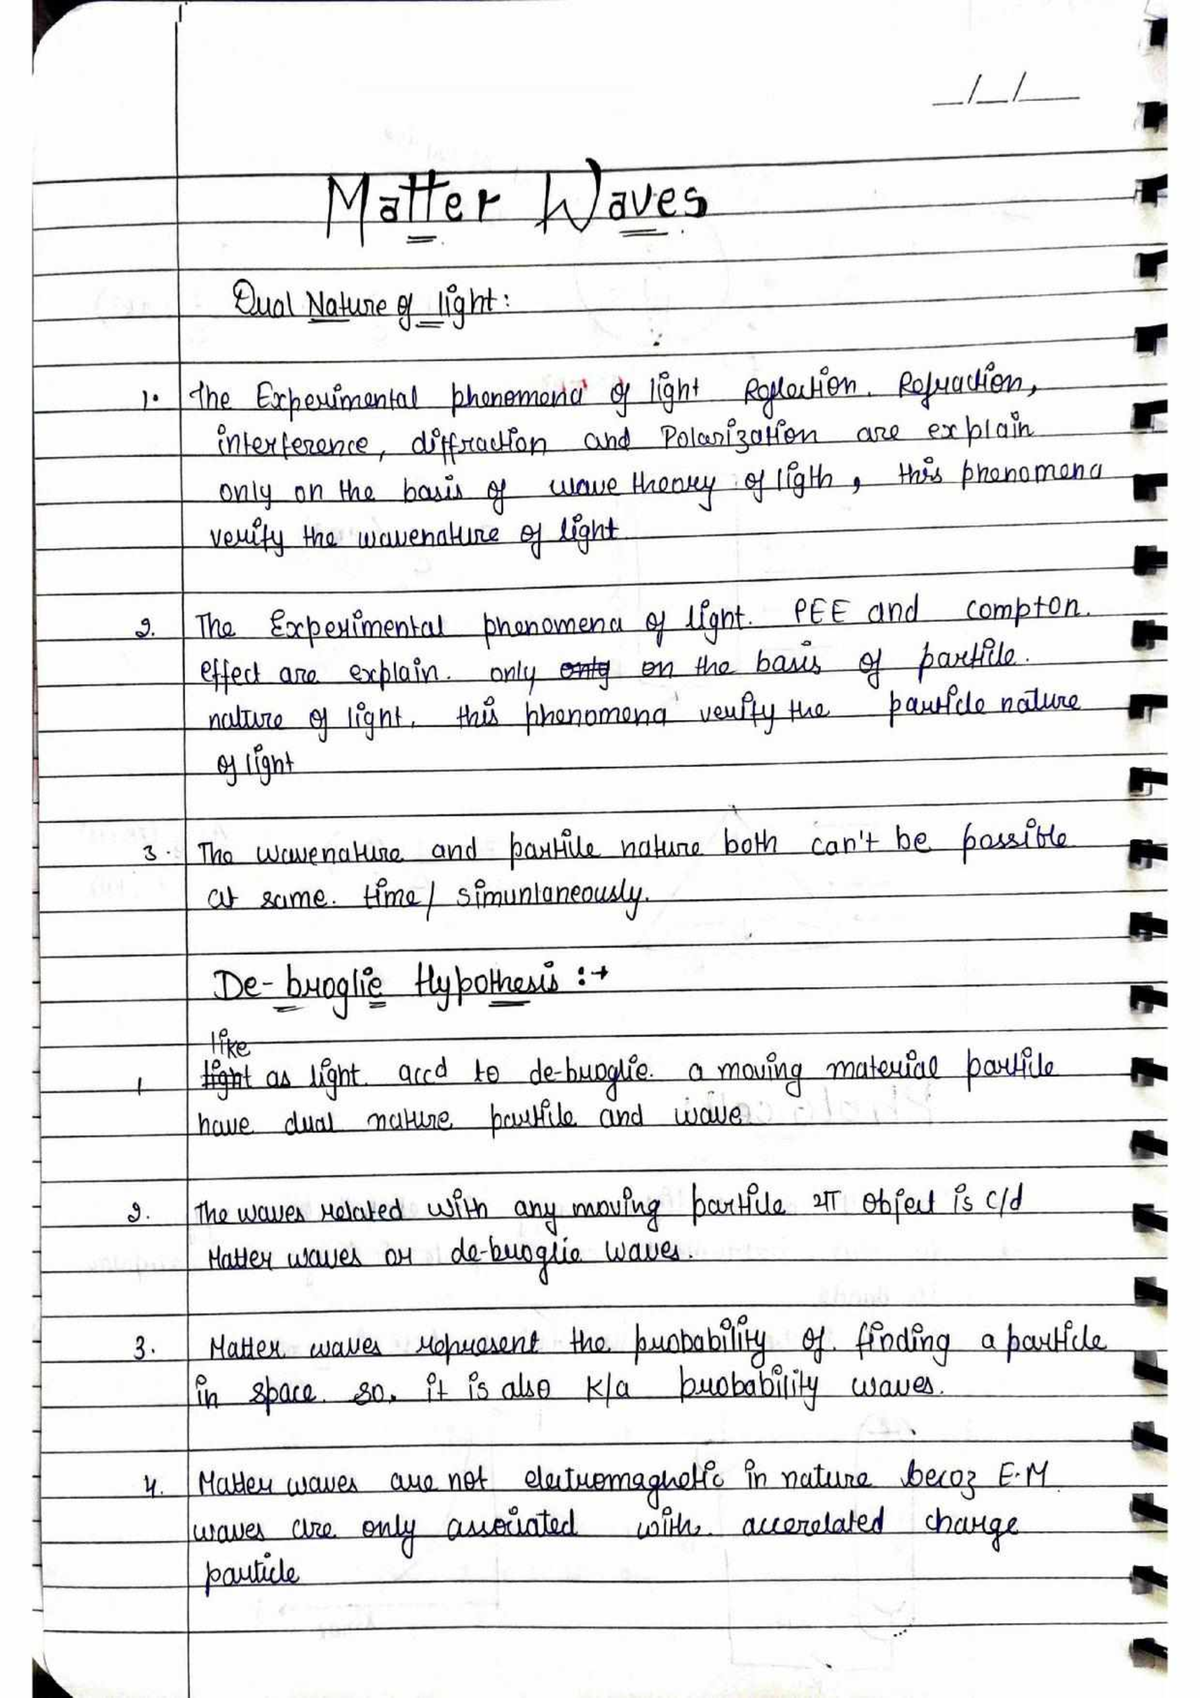 _/_/__
Matter Waves
Dual Nature of light:
1. The Experimental phenomena of light Reflection. Refraction,
interference, diffraction and Polarization are explain
only on the basis of wave theory of ligth, this phenomena
verify the wavenature of light
2. The Experimental phenomena of light. PEE and compton.
effect are explain. only only on the basis of particle.
nature of light. this phenomena verify the particle nature
of light
3. The wavenature and particle nature both can't be possible
at same. time/ simuntaneously.
De-broglie Hypothesis :→
like
1 light as light. accd to de-broglie. a moving material particle
have dual nature particle and wave
2. The waves related with any moving particle या object is c/d
Matter waves or de-broglie waves.
3. Matter waves represent the probability of. finding a particle
in space. so. it is also k/a probability waves.
4. Matter waves are not electromagnetic in nature becoz E.M
waves are only associated with. accerelated charge
particle